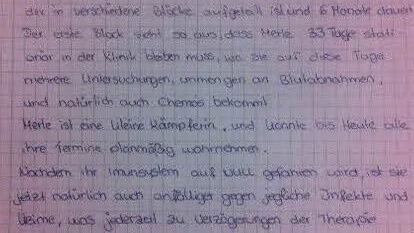 der in verschiedene Blöcke aufgeteilt ist und 6 Monate dauert
Der erste Block sieht so aus, dass Merle 33 Tage stati
onär in der Klinik bleiben muss, wo sie auf diese Tage
mehrere Untersuchungen, unmengen an Blutabnahmen,
und natürlich auch Chemos bekommt
Merle ist eine kleine Kämpferin, und konnte bis Heute alle
ihre Termine planmäßig wahrnehmen.
Nachdem ihr Imunsystem auf NULL gefahren wird, ist sie
jetzt natürlich auch anfälliger gegen jegliche Infekte und
Keime, was jederzeit zu Verzögerungen der Therapie